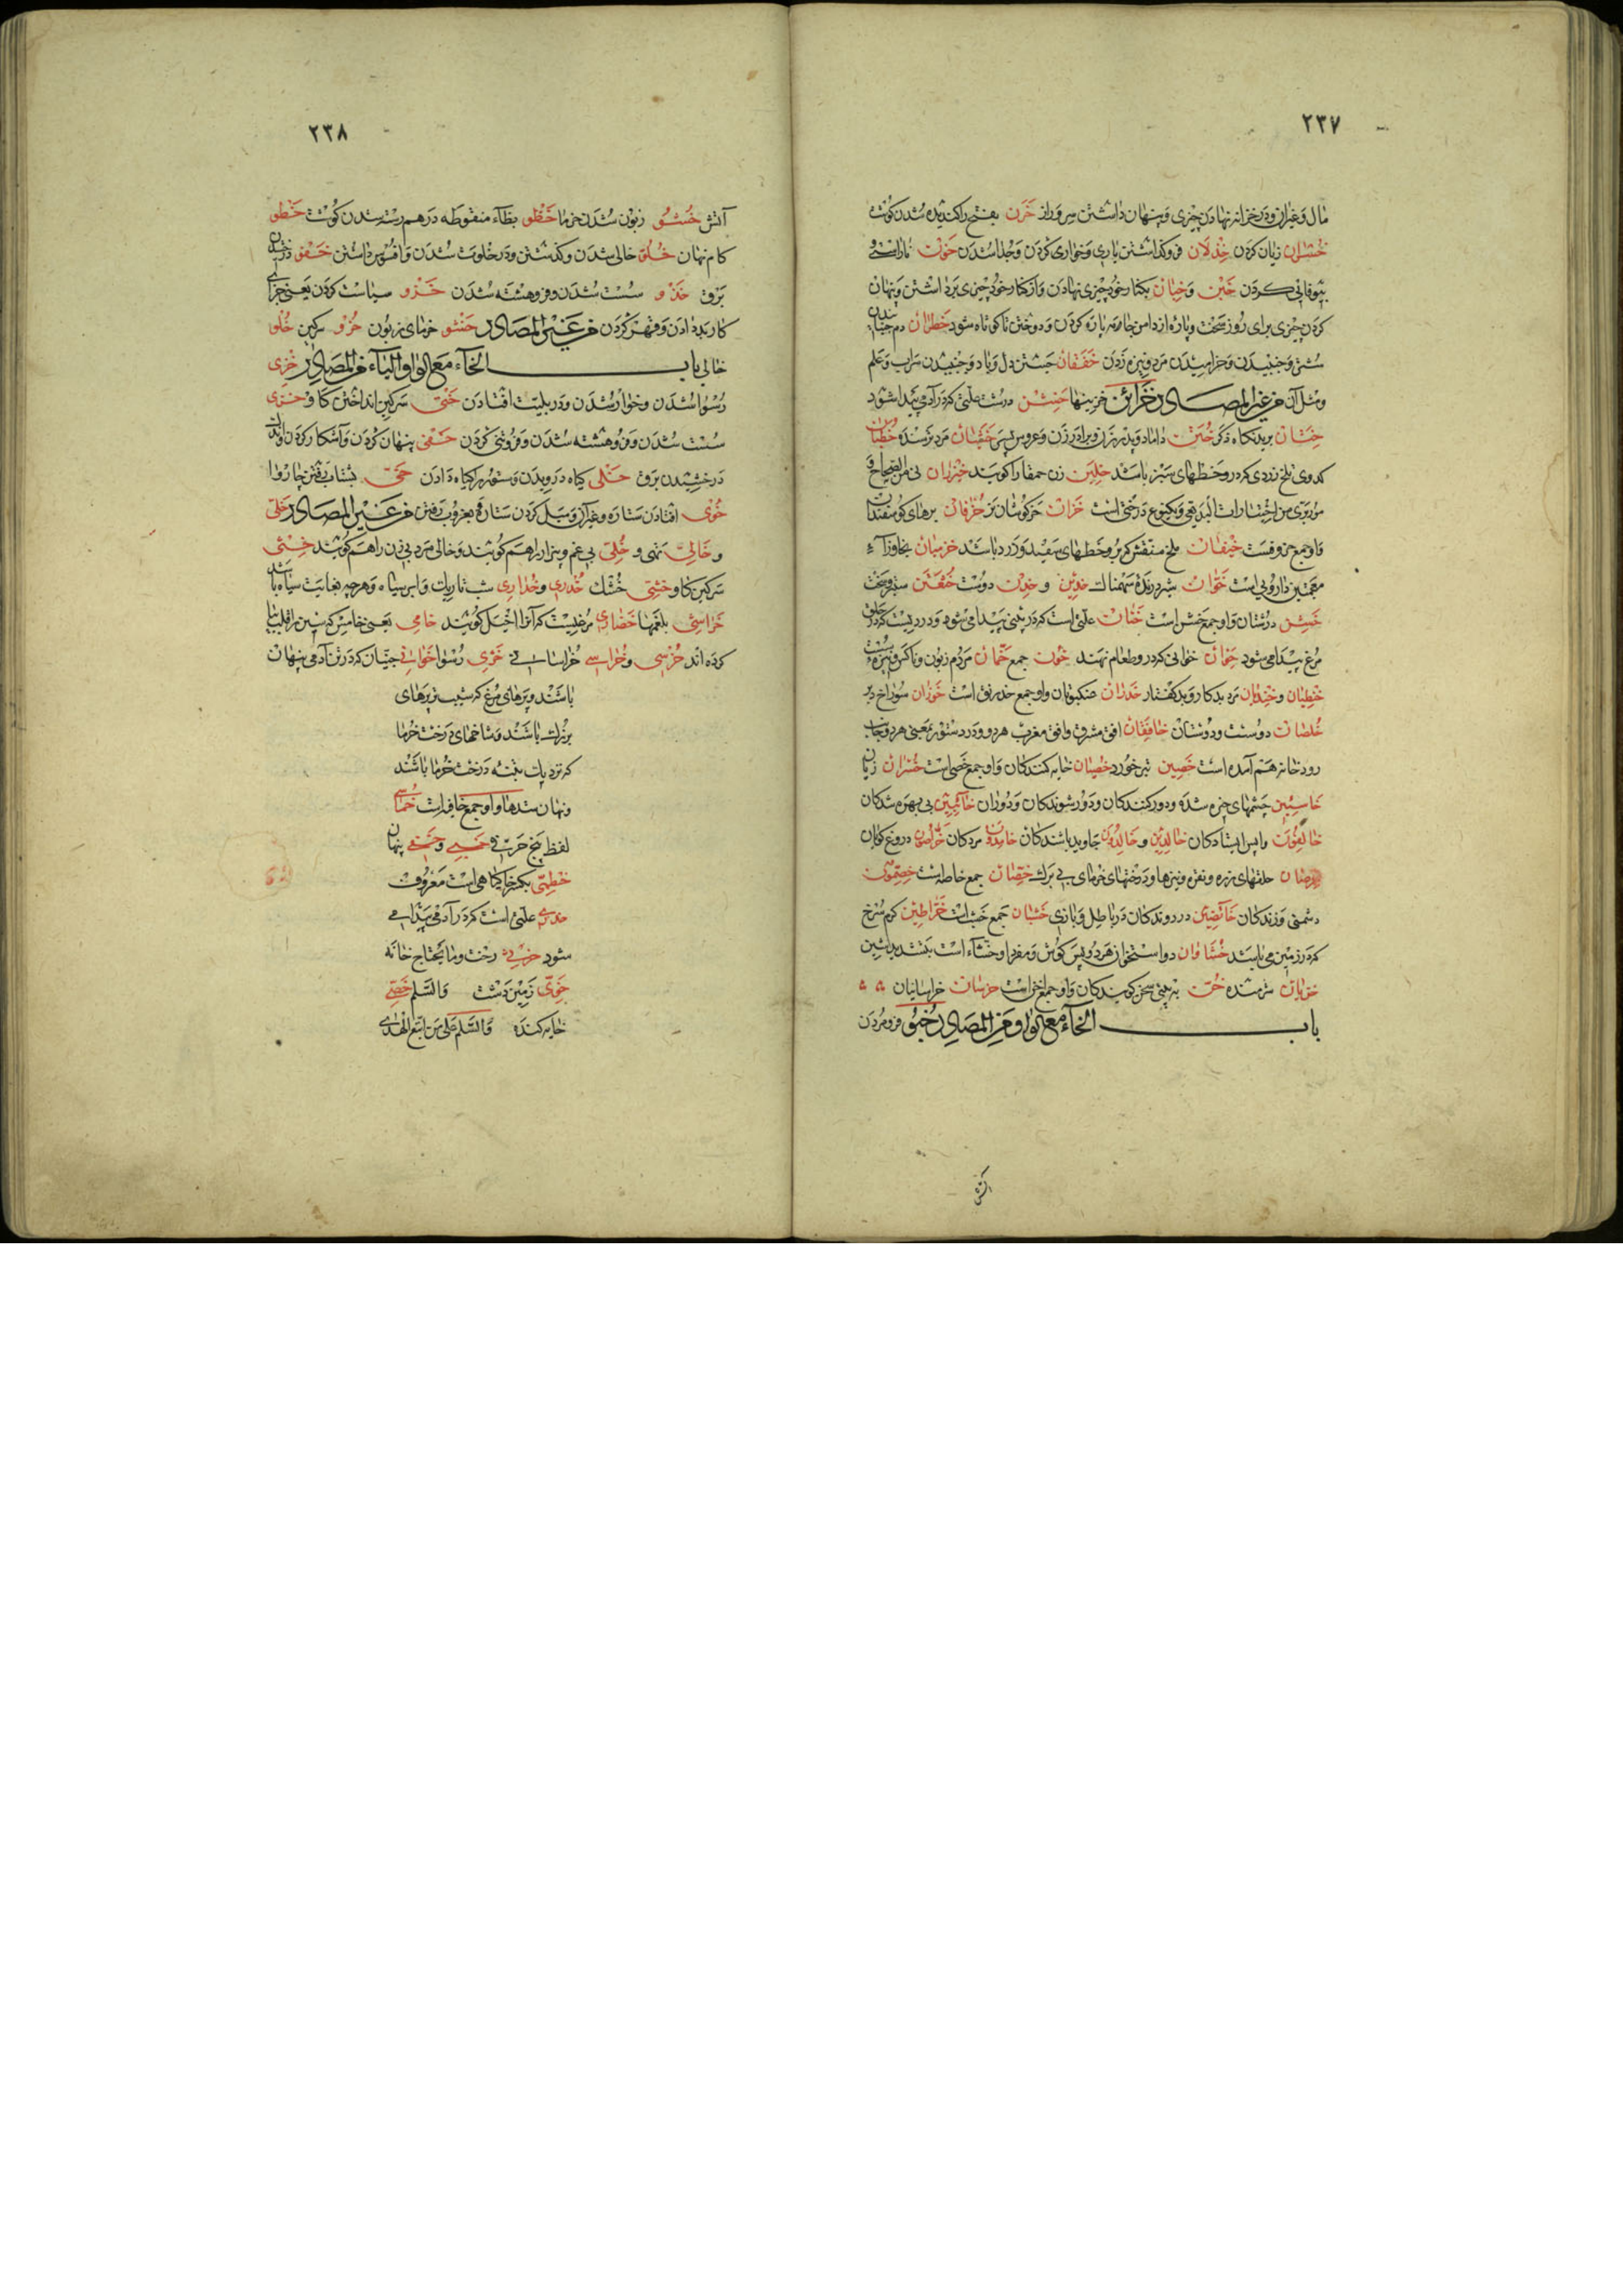 ٢٣٧
مال و غیر آن و در خزانه نهادن چیزی و پنهان داشتن سر و راز خزن بفتح را کندیده شدن گوشت
خسران زیان کردن خذلان فرو گذاشتن یاری و خواری کردن و جدا شدن خون ناراستی و
بیوفائی کردن خبن و خبان بکنار خود چیزی نهادن و از کنار خود چیزی برداشتن و پنهان
کردن چیزی برای روز سخت و پاره از دامن جامه پاره کردن و دوختن تا کوتاه شود خطران دم جنبانیدن
شتر و جنبیدن و خرامیدن مرد و نیزه زدن خفقان جستن دل و باد و جنبیدن سراب و علم
و مثل آن من غیر المصادر خزائن خزینها خشن درشت علتی که در آدمی پیدا شود
ختان بریدنگاه ذکر ختن داماد و پدر زن و برادر زن و عروس پسر مرد ترسنده خطبان
کدوی تلخ زردی که در و خطهای سبز باشد خلبن زن حمقا را گویند خیزران نی من الصحاح و
درختی است خزان خرگوشان نر خرفان برهای گوسفندان
واو جمع خروفست خیفان ملخ منقش که برو خطهای سفید و زرد باشد
معجمتین داروئی است خوان شیر درنده سهمناک خدین و خدن دوست
خشن درشتان و او جمع خشن است خنان علتی است که در بینی پیدا می شود و دردیست که در حلق
مرغ پیدا می شود خوان خوانی که درو طعام نهند خون جمع خمان مردم زبون و ناکس و نیزه سست
مرد بدکار و بد گفتار خدران عنکبوتان و او جمع خدرنق است خوران سوراخ دبر
خلصان دوست و دوستان خافقان افق مشرق و افق مغرب هر دو و در دستور بمعنی هر دو جانب
رودخانه هم آمده است خصین تبر خورد خصیان خایه کنندگان و او جمع خصی است خسران زیان
خاسئین چشمهای خیره شده و دور کنندگان و دور شوندگان و دوران خائبین بی بهره شدگان
خالفون واپس ایستادگان خالدین و خالدون جاوید باشندگان خامدون مردگان خراصون دروغ گویان
خرصان حلقهای زره و نقره و نیزها و درختهای خرمای بی برگ خصمون
دشمنی ورزندگان خائضین در روندگان در باطل و بازی خشبان جمع خشب است خراطین کرم سرخ
که در زمین می باشد خششاوان دو استخوان هر دو پس گوش و مفرد او خششاء است بتشدید شین
خزیان شرمنده خن به بینی سخن گویندگان و او جمع اخن است خرسان خراسانیان
باب الخاء مع الواو من المصادر خبو فرو مردن
آتش
٢٣٨
آتش خشو زبون شدن خرما خظو بظاء منقوطه در هم رسته شدن گوشت خطو
گام نهادن خلو خالی شدن و گذشتن و در خلوت شدن و افسوس داشتن خفو درخشیدن
برق خذو سست شدن و فرو هشته شدن خزو سیاست کردن یعنی جزای
کار بد دادن و قهر کردن من غیر المصادر خشو خرمای زبون خرو سرگین خلو
خالی باب الخاء مع الواو الیاء من المصادر خزی
رسوا شدن و خوار شدن و در بلیت افتادن خثی سرگین انداختن گاو خذی
سست شدن و فرو هشته شدن و فروتنی کردن خفی پنهان کردن و آشکار کردن
درخشیدن برق خلی گیاه درویدن و ستور را گیاه دادن بشتاب رفتن چاروا
خوی افتادن ستاره و غیر آن و میل کردن ستاره بغروب رفتن من غیر المصادر خلی
و خالی تهی و خلی بی غم و بیزار را هم گویند و خالی مرد بی زن را هم گویند خثی
سرگین گاو خشی خشک خدری و خداری شب تاریک و ابر سیاه و هر چه بغایت سیاه باشد
خراشی بلغمها خضاری مرغیست که آنرا اخیل گویند خامی یعنی خامس که سین را قلب بیا
کرده اند خرسی و خراسی خراسانی خزی رسوا خوافی جنیان که در تن آدمی پنهان
باشند و پرهای مرغ که شیب تر پرهای
بزرگ باشند و شاخهای درخت خرما
که نزدیک بقبه درخت خرما باشند
و نهان شدها و او جمع خافیه است خماسی
لفظ پنج حرفی و خفی پنهان
خطمی بکسر خا گیاهی است معروف
علتی است که در آدمی پیدا می
شود خرثی رخت و ما یحتاج خانه
خوی زمین دشت والسلم خصی
خایه کنده والسلم علی من اتبع الهدی